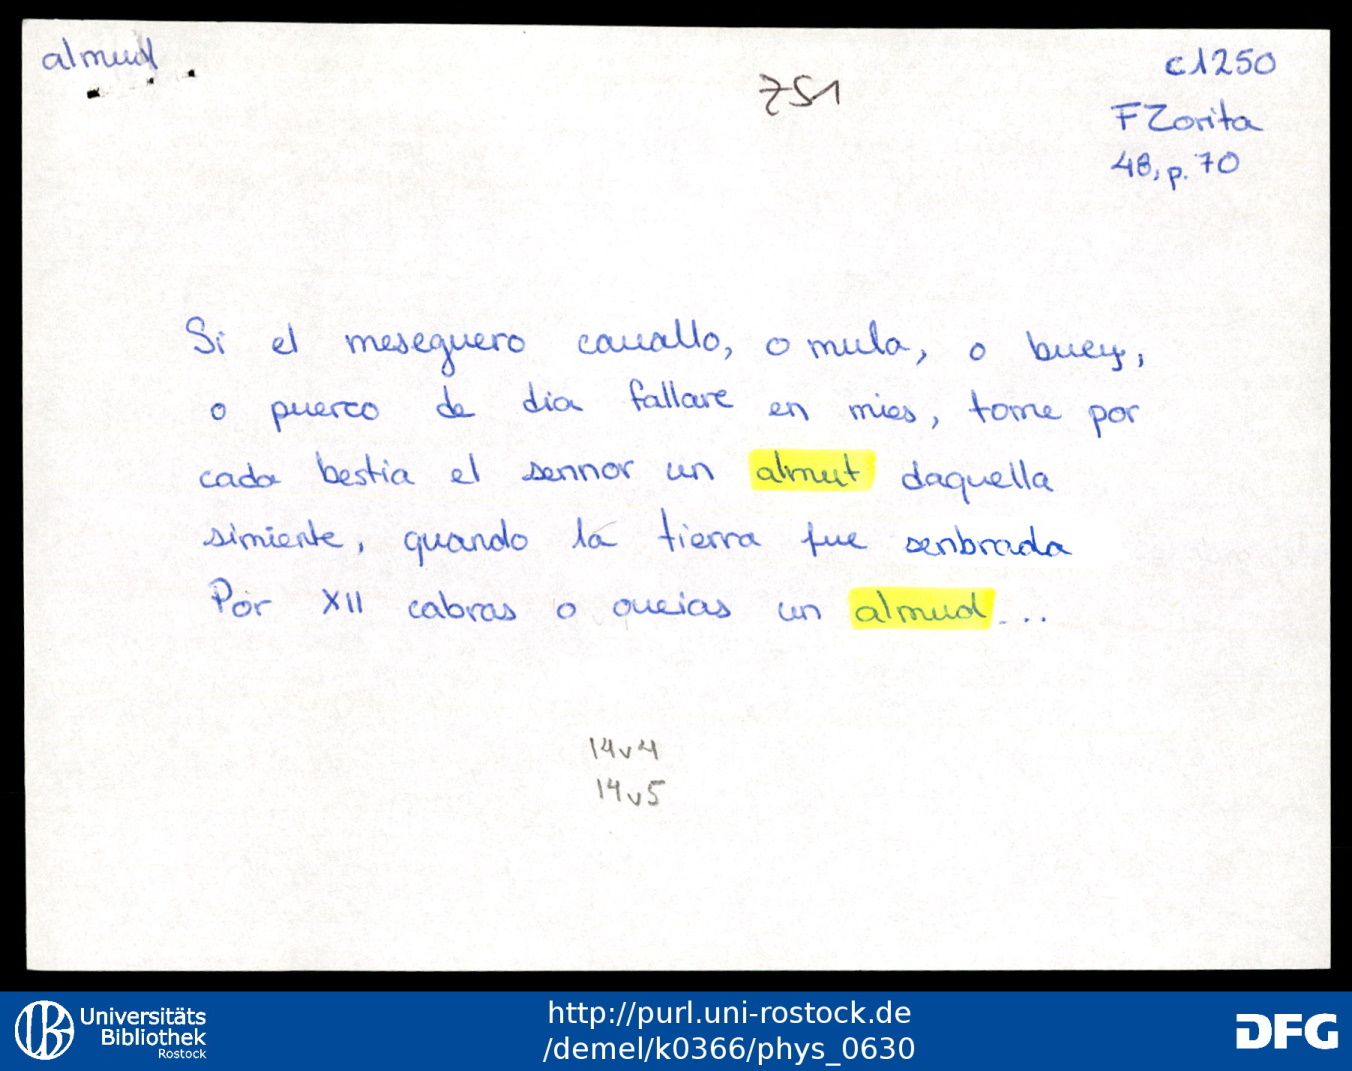 almud
c1250
ZS1
F Zorita
48, p. 70
Si el meseguero cauallo, o mula, o buey,
o puerco de dia fallare en mies, tome por
cada bestia el sennor un almut daquella
simiente, quando la tierra fue senbrada
Por XII cabras o oueias un almud ...
14v4
14v5
Universitäts
Bibliothek
Rostock
http://purl.uni-rostock.de
/demel/k0366/phys_0630
DFG